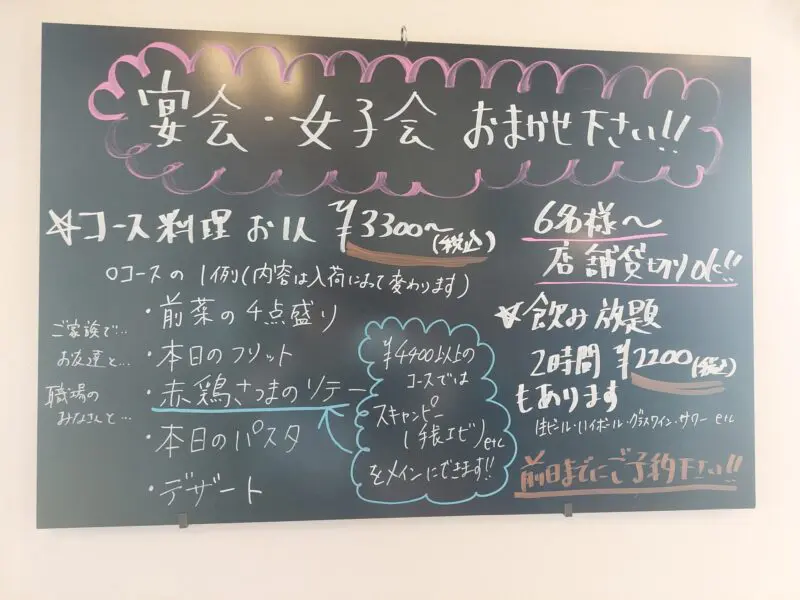 宴会・女子会 おまかせ下さい!!
☆コース料理 お1人 ¥3300〜(税込)
○コースの1例(内容は入荷によって変わります)
・前菜の4点盛り
・本日のフリット
・赤鶏さつまのソテー
・本日のパスタ
・デザート
ご家族で…
お友達と…
職場の
みなさんと…
¥4400以上の
コースでは
スキャンピー
(手長エビ)etc
をメインにできます!!
6名様〜
店舗貸切りok!!
☆飲み放題
2時間 ¥2200(税込)
もあります
(生ビール・ハイボール・グラスワイン・サワー etc
前日までにご予約下さい!!